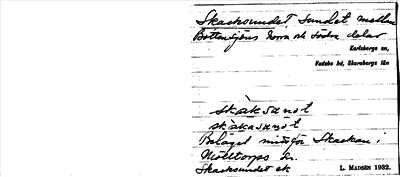 Skacksundet, sundet mellan
Bottensjöns norra och södra delar
Karlsborgs sn,
Vadsbo hd, Skaraborgs län
skáksundt
skákasundt
Beläget nära Skackan i
Mölltorps sn.
Skacksundet ek
L. MADSÉN 1932.